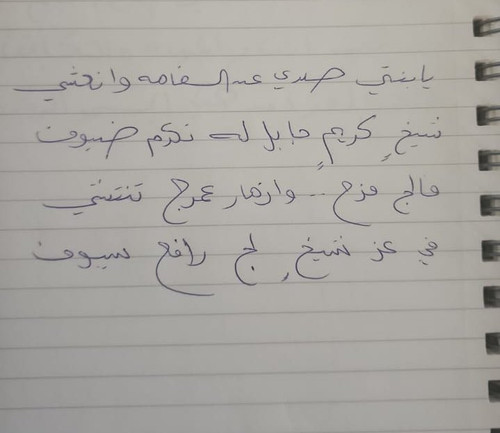 يا بنتي صدي عن السفاهه وانعشي
شيخٍ كريمٍ جابل له نكرم ضيوف
مالج مزح .. وازهار عمرج تنتشي
في عز شيخٍ لج رافع سيوف